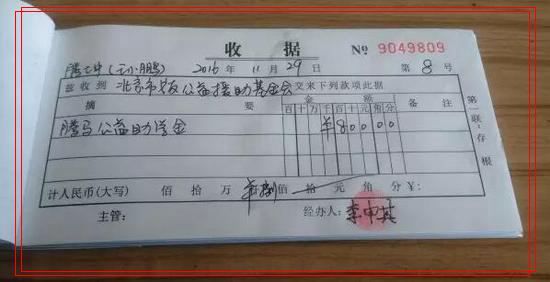 收 据 № 9049809
2016年 11月 29日 第 8 号
兹收到 北京市 公益援助基金会 交来下列款项此据
摘 要 金 额 备 注
百 十 万 千 百 十 元 角 分
腾马公益助学金 ¥80000
第一联:存根
计人民币(大写) 佰 拾 万 捌佰 拾 元 角 分 ¥:
主管: 经办人: 李中其